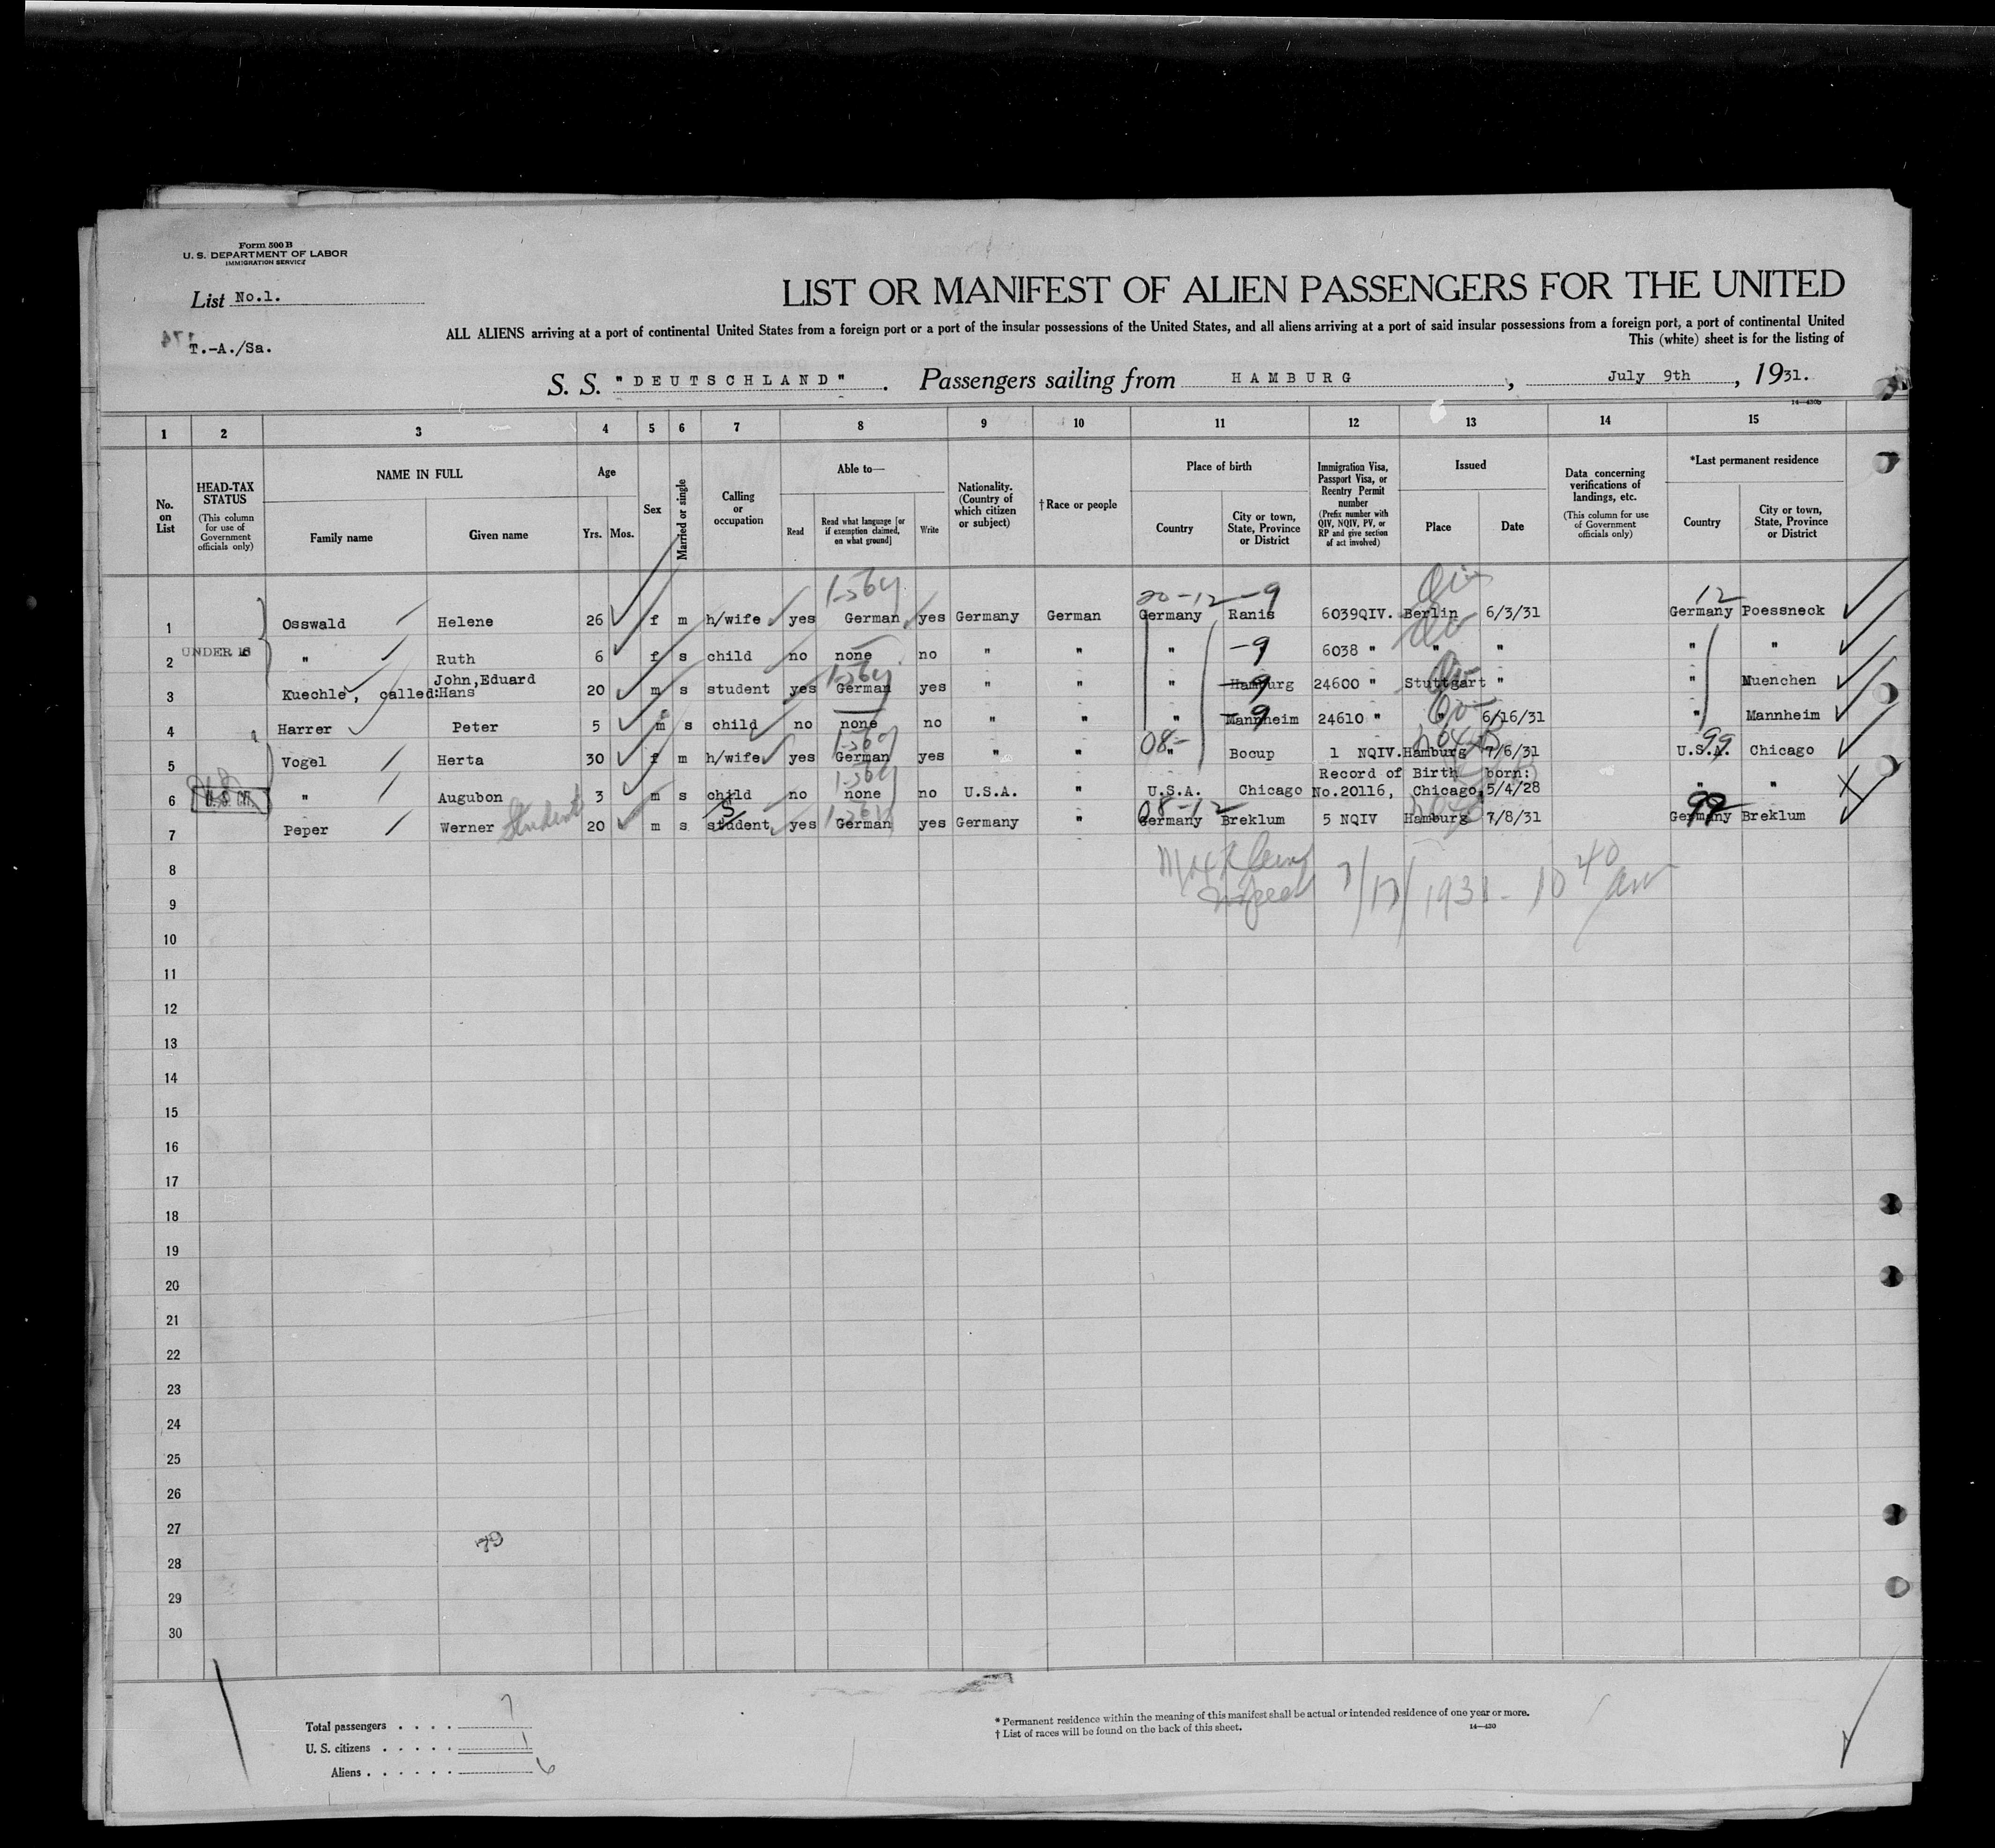 Form 500 B
U. S. DEPARTMENT OF LABOR
IMMIGRATION SERVICE
List No.1.
T.-A./Sa.
LIST OR MANIFEST OF ALIEN PASSENGERS FOR THE UNITED
ALL ALIENS arriving at a port of continental United States from a foreign port or a port of the insular possessions of the United States, and all aliens arriving at a port of said insular possessions from a foreign port, a port of continental United
This (white) sheet is for the listing of
S. S. "DEUTSCHLAND". Passengers sailing from HAMBURG, July 9th, 1931.
14—430b
1 2 3 4 5 6 7 8 9 10 11 12 13 14 15
No. on List
HEAD-TAX STATUS (This column for use of Government officials only)
NAME IN FULL
Family name Given name
Age
Yrs. Mos.
Sex
Married or single
Calling or occupation
Able to—
Read Read what language [or if exemption claimed, on what ground] Write
Nationality. (Country of which citizen or subject)
† Race or people
Place of birth
Country City or town, State, Province or District
Immigration Visa, Passport Visa, or Reentry Permit number (Prefix number with QIV, NQIV, PV, or RP and give section of act involved)
Issued
Place Date
Data concerning verifications of landings, etc. (This column for use of Government officials only)
*Last permanent residence
Country City or town, State, Province or District
20-12-9 12
1 Osswald Helene 26 f m h/wife yes German yes Germany German Germany Ranis 6039QIV. Berlin 6/3/31 Germany Poessneck
2 UNDER 16 " Ruth 6 f s child no none no " " " -9 6038 " " " " "
John,Eduard
3 Kuechle, called:Hans 20 m s student yes German yes " " " Hamburg 24600 " Stuttgart " " Muenchen
4 Harrer Peter 5 m s child no none no " " " Mannheim 24610 " " 6/16/31 " Mannheim
5 Vogel Herta 30 f m h/wife yes German yes " " 08- " Bocup 1 NQIV. Hamburg 7/6/31 U.S.A. 99 Chicago
Record of Birth born:
6 U.S. CIT. " Augubon 3 m s child no none no U.S.A. " U.S.A. Chicago No.20116, Chicago, 5/4/28 " "
08-12 99
7 Peper Werner Student 20 m s student yes German yes Germany " Germany Breklum 5 NQIV Hamburg 7/8/31 Germany Breklum
8
7/17/1931 - 10 40 am
9
10
11
12
13
14
15
16
17
18
19
20
21
22
23
24
25
26
27
28
29
30
Total passengers . . . . 7
U. S. citizens . . . . . 1
Aliens . . . . . . 6
* Permanent residence within the meaning of this manifest shall be actual or intended residence of one year or more.
† List of races will be found on the back of this sheet.
14—430